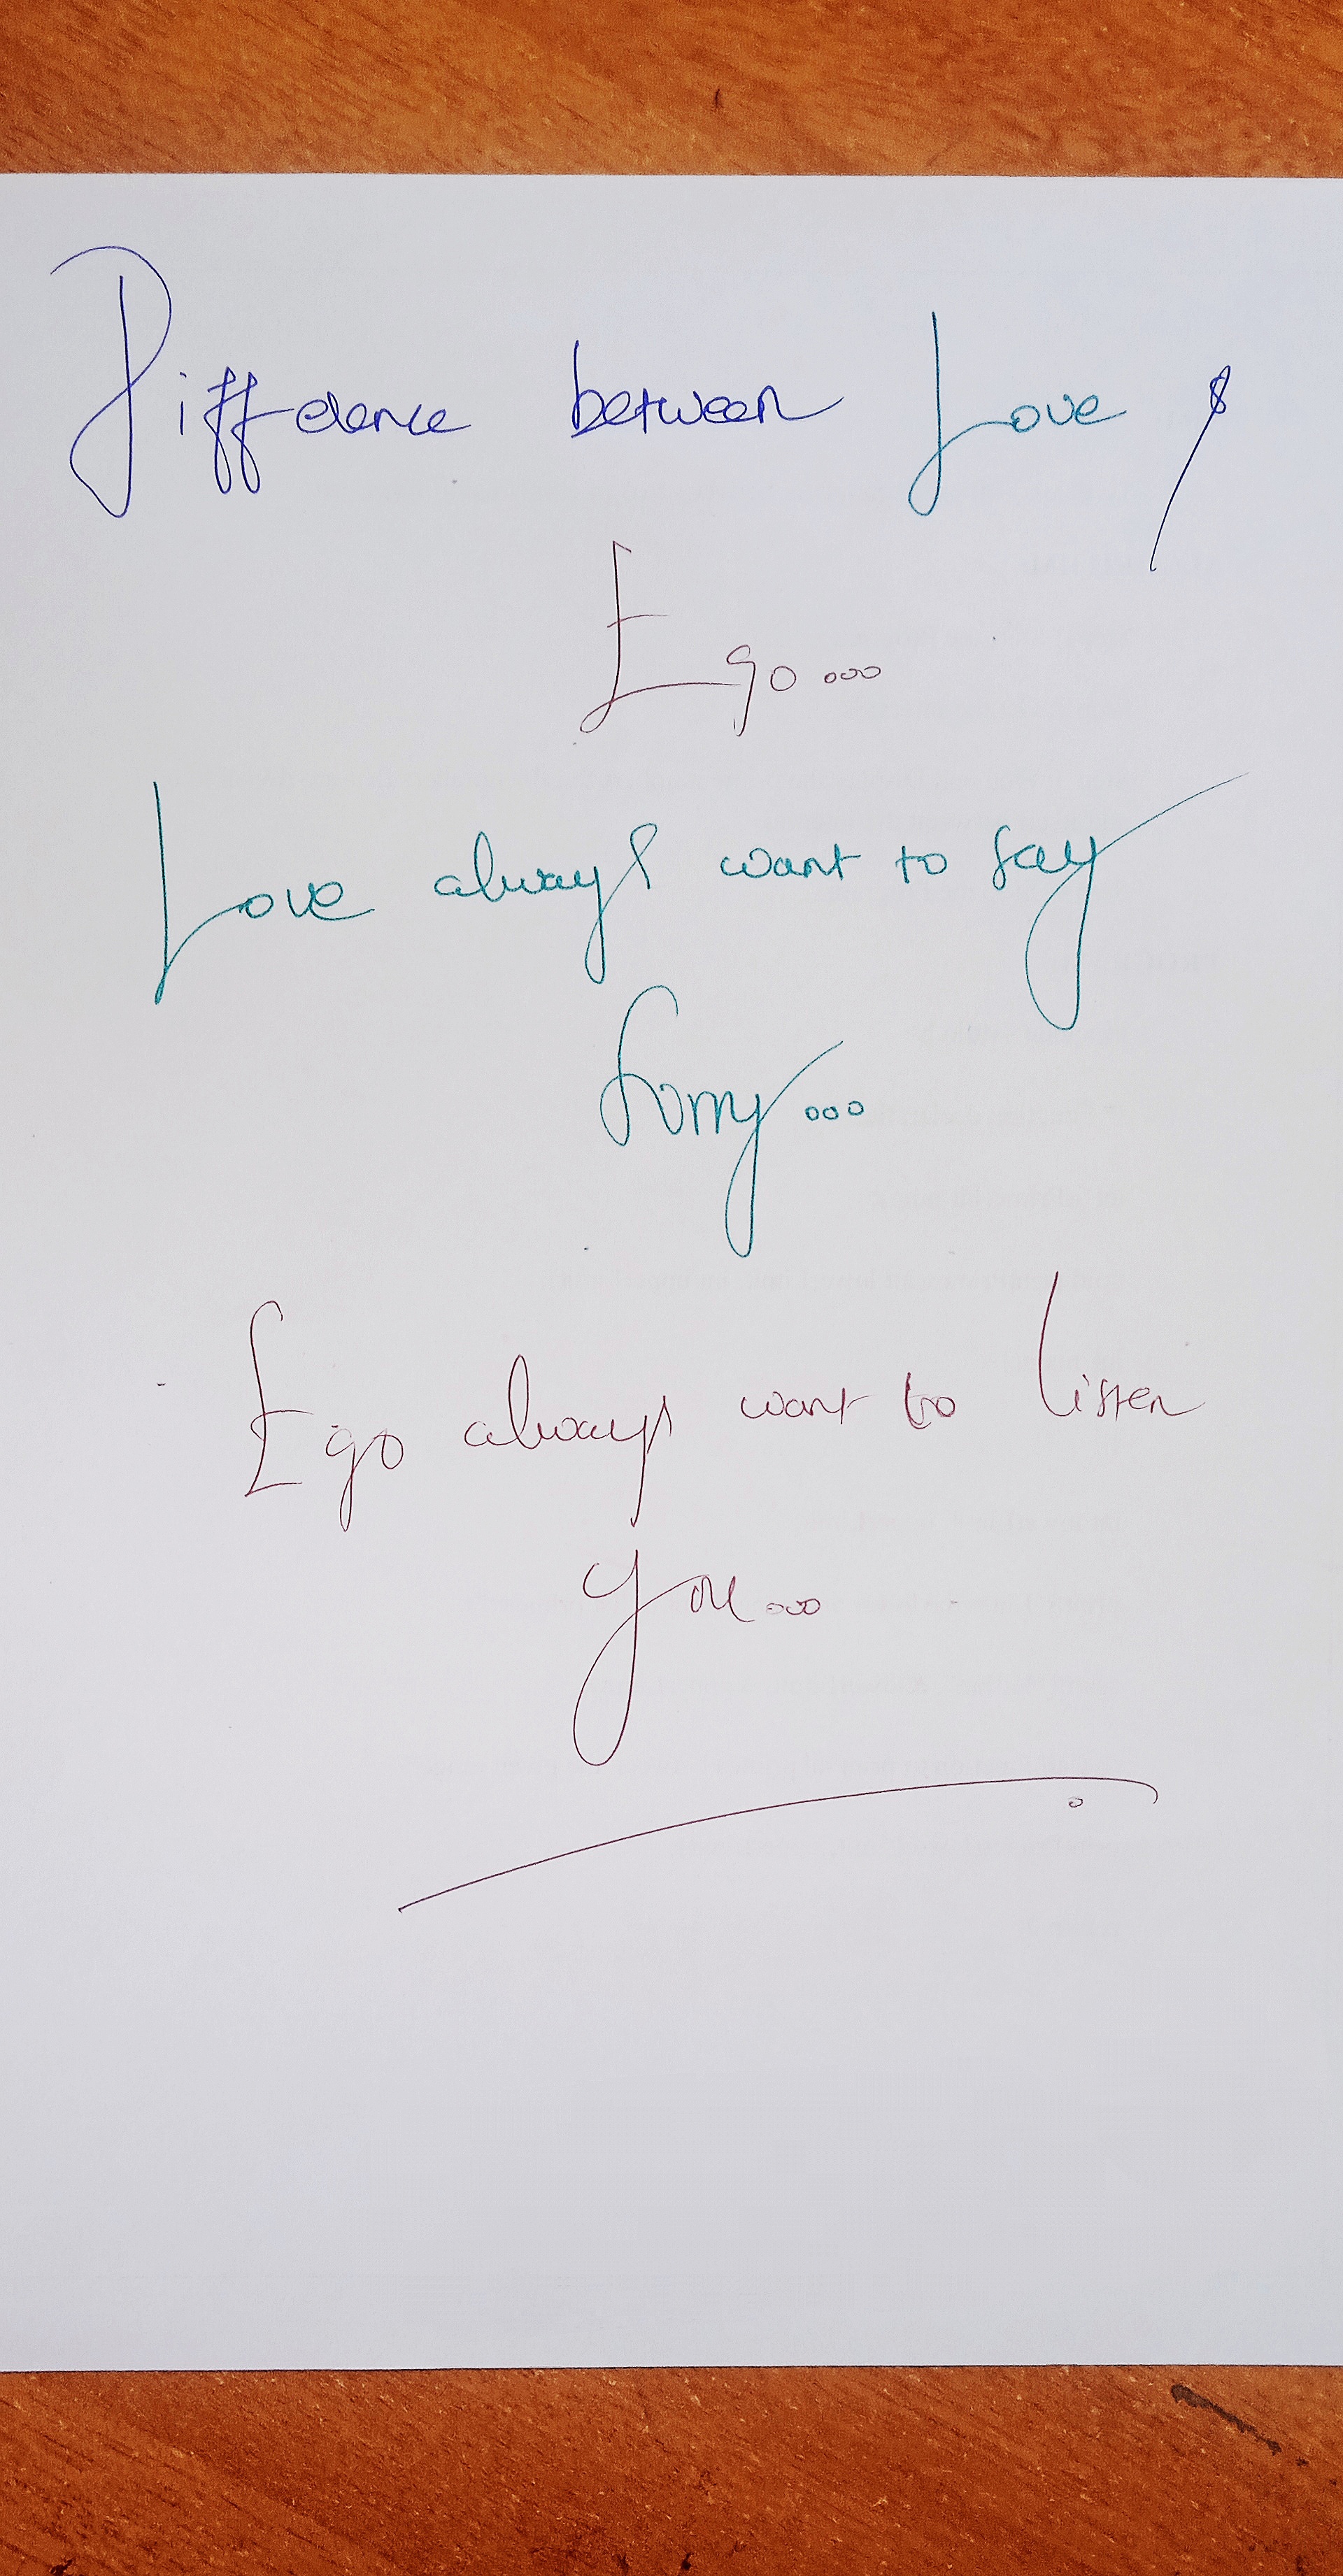 Difference between Love &
Ego...
Love always want to say
Sorry...
Ego always want to listen
you...